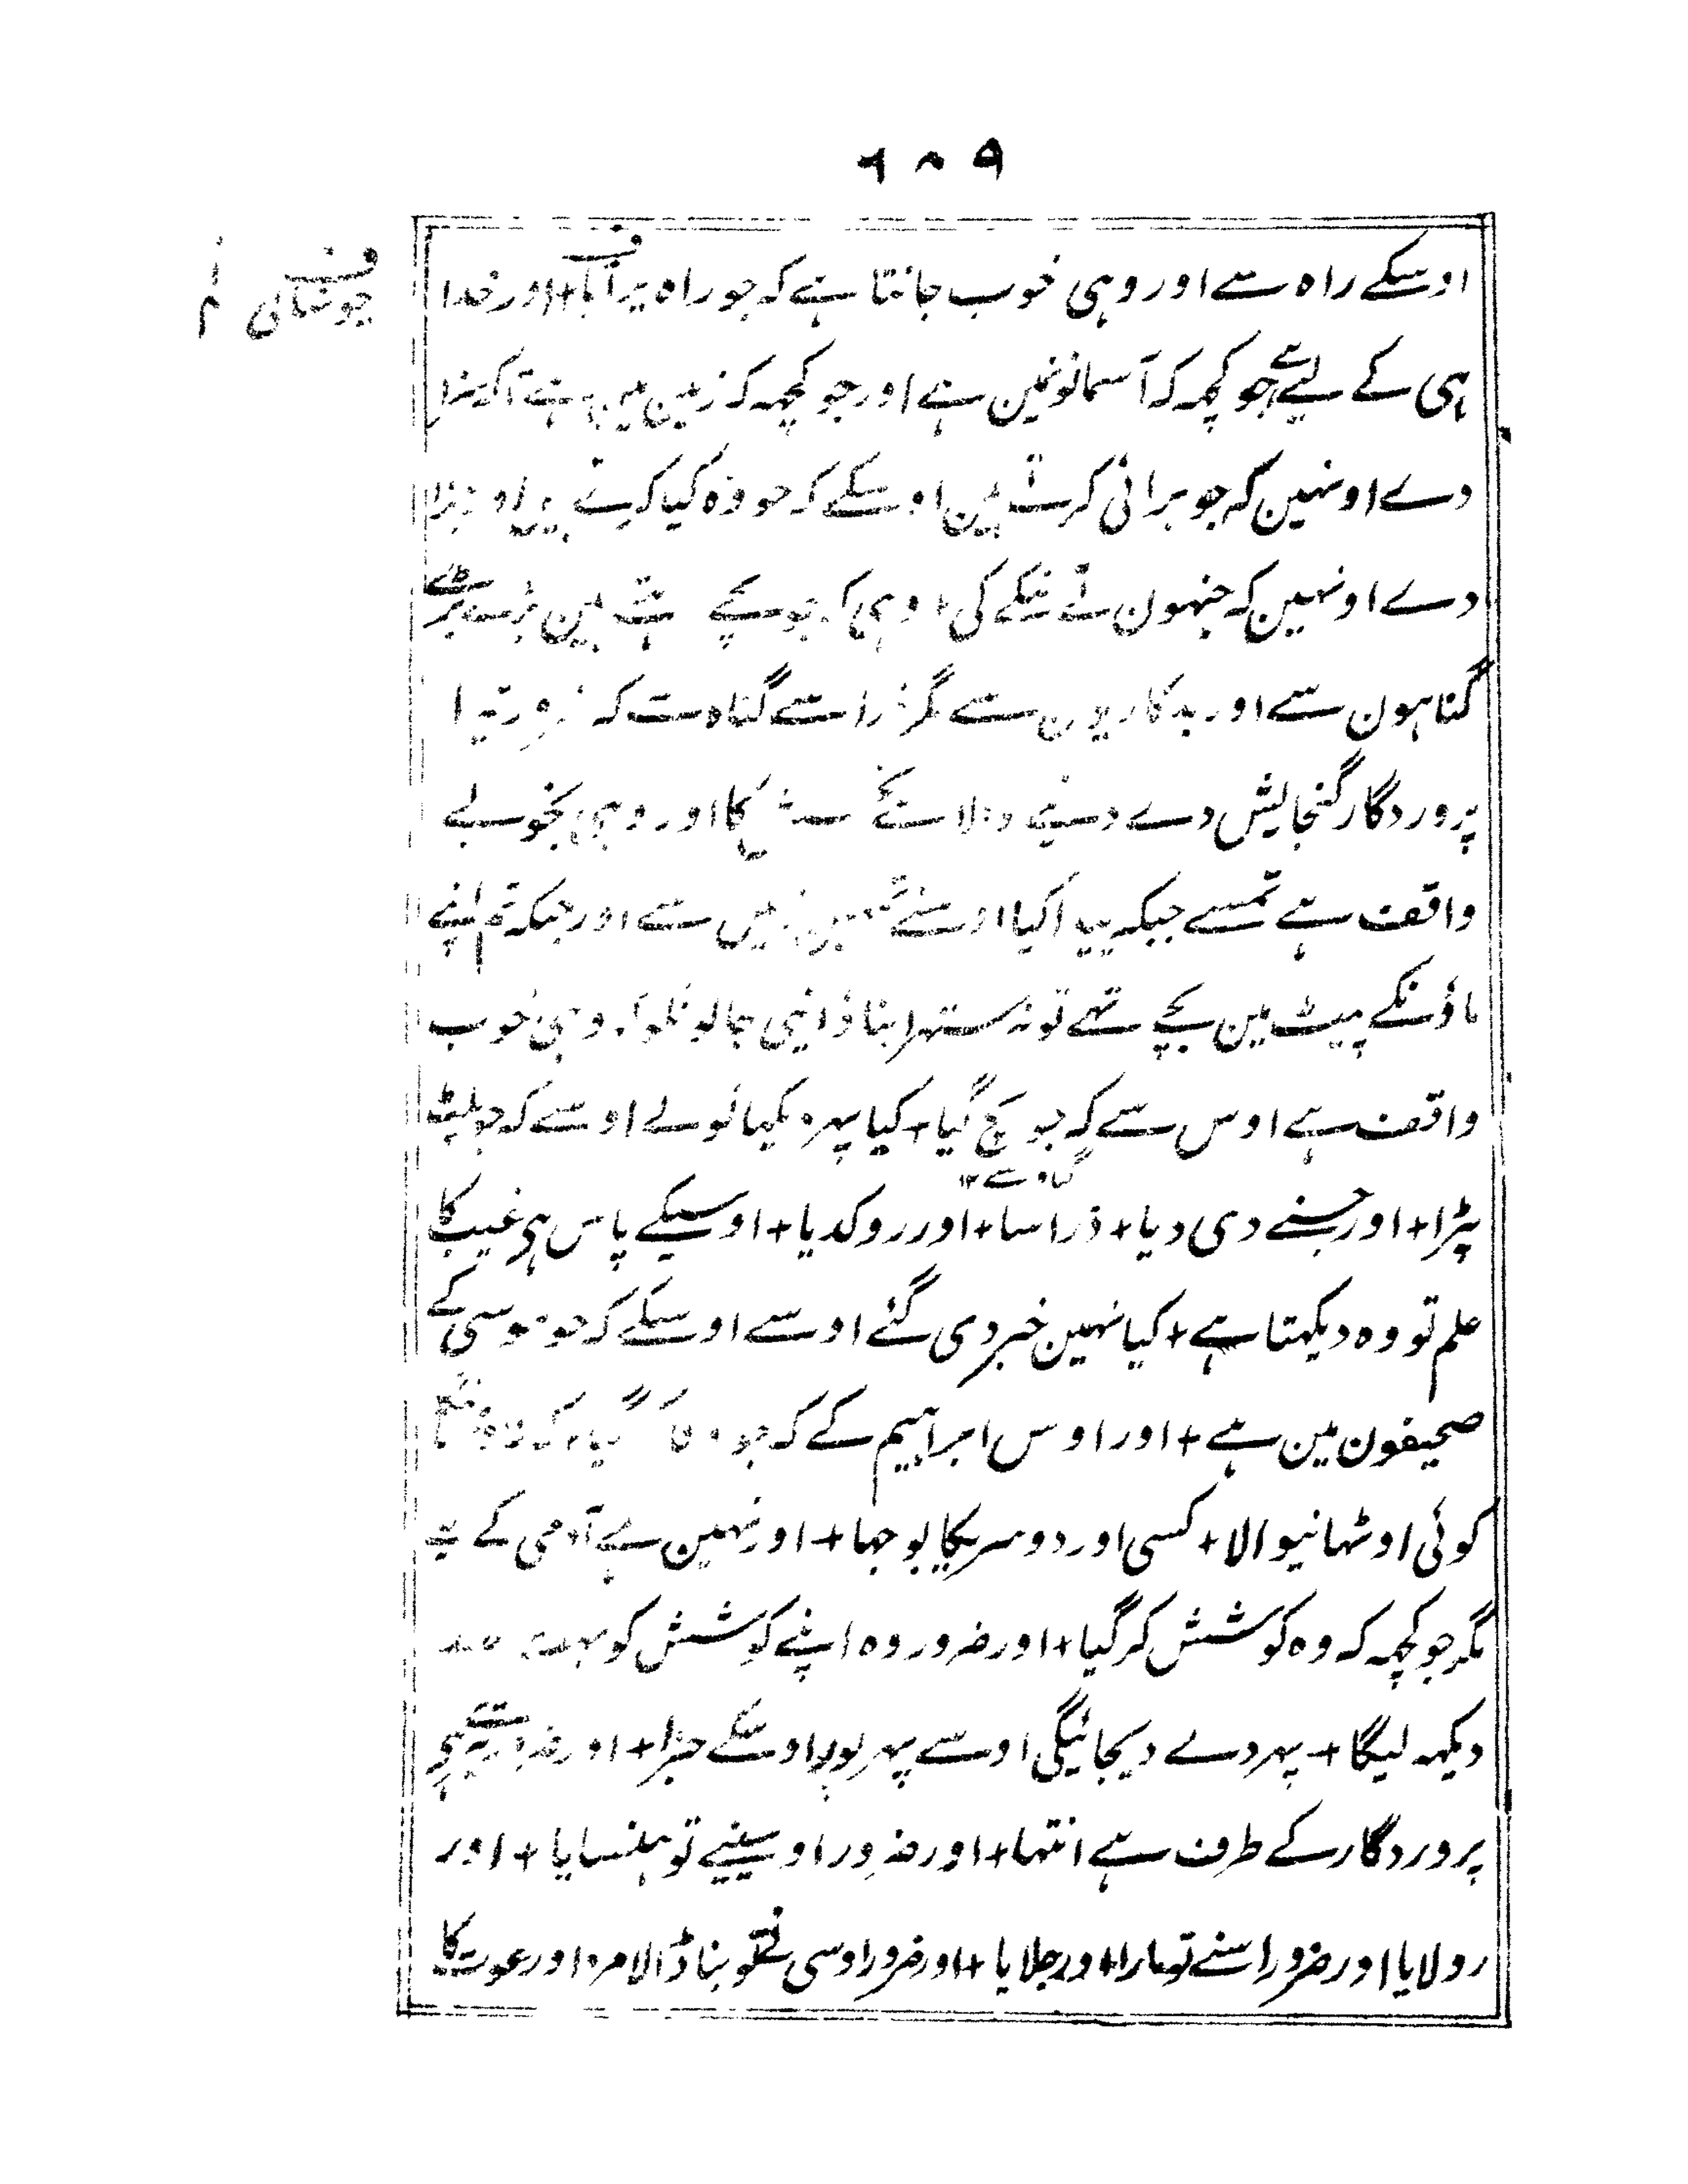 ۶۸۹
اوسکے راہ سے اور وہی خوب جانتا ہے کہ جو راہ پر آیا+ اور خدا
ف
ف
چوتھائی
ہی کے لیے ہے جو کچھ کہ آسمانونمین ہے اور جو کچھہ کہ زمین مین ہے تاکہ سزا
دے اونہین کہ جو برائی کرتے ہین اوسکے کہ جو وہ کیا کرتے ہین اور جزا
دے اونہین کہ جنہون نے نیکی کی+ وہی کہ جو بچے ہین بڑے بڑے
گناہون سے اور بدکاریون سے مگر ذرا سے گناہ سے کہ تیرا
پروردگار گنجایش دے دینے والا ہے کا اور وہی بخوبے
واقف ہے تمسے جبکہ پیدا کیا اوسنے تمہین زمین سے اور جبکہ تم اپنے
ماؤنکے پیٹ مین بچے تھے تو نہ ستہرا بناؤ اپنی جانونکو وہی خوب
واقف ہے اوس سے کہ جو بچ گیا+ کیا پہر دیکہا تونے اوسے کہ جو پلٹ
گناہ سے ۱۲
پڑا+ اور جسنے دی دیا+ ذرا سا+ اور روکدیا+ اوسیکے پاس ہی غیب کا
علم تو وہ دیکہتا ہے+ کیا نہین خبر دی گئے اوسے اوسکے کہ جو موسی کے
صحیفون مین ہے+ اور اوس ابراہیم کے کہ جو وفا کر گیا+ کہ نہ
کوئی اوٹہانیوالا+ کسی اور دوسریکا بوجہا+ اور نہین ہے آدمی کے لیے
مگر جو کچھہ کہ وہ کوشش کر گیا+ اور ضرور وہ اپنے کوشش کو بہت
دیکہہ لیگا+ پہر دے دیجائیگی اوسے پہر پور اوسکے جزا+ اور ضرور تیرے ہی
پروردگار کے طرف ہے انتہا+ اور ضرور اوسینے تو ہنسایا+ اور
رولایا اور ضرور اسنے تو مارا+ اور جلایا+ اور ضرور اوسی نے تو بنا ڈالا مرد اور عورت کا